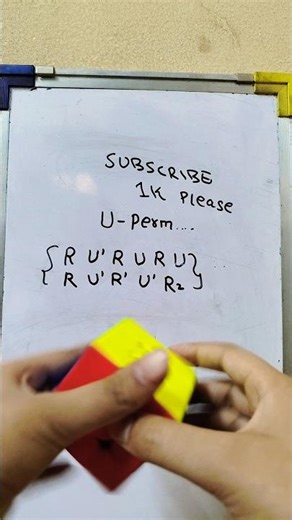 SUBSCRIBE
1K Please
U-Perm....
{R U' R U R U}
{R U' R' U' R2}